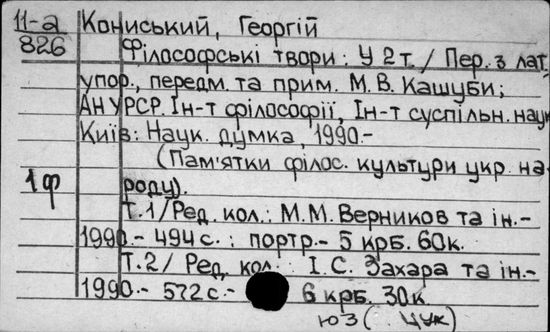 11-а Кониський, Георгій
826 Філософські твори: У 2 т. / Пер. з лат.,
упор., передм. та прим. М. В. Кашуби;
АН УРСР. Ін-т філософії, Ін-т суспільн. наук
Київ: Наук. думка, 1990.-
(Пам'ятки філос. культури укр. на-
1ф роду).
Т.1/Ред. кол.: М.М. Верников та ін.-
1990.- 494 с.: портр.- 5 крб. 60к.
Т.2/ Ред. кол.: І.С. Захара та ін.-
1990.- 572 с.- 6 крб. 30к.
ЮЗ (